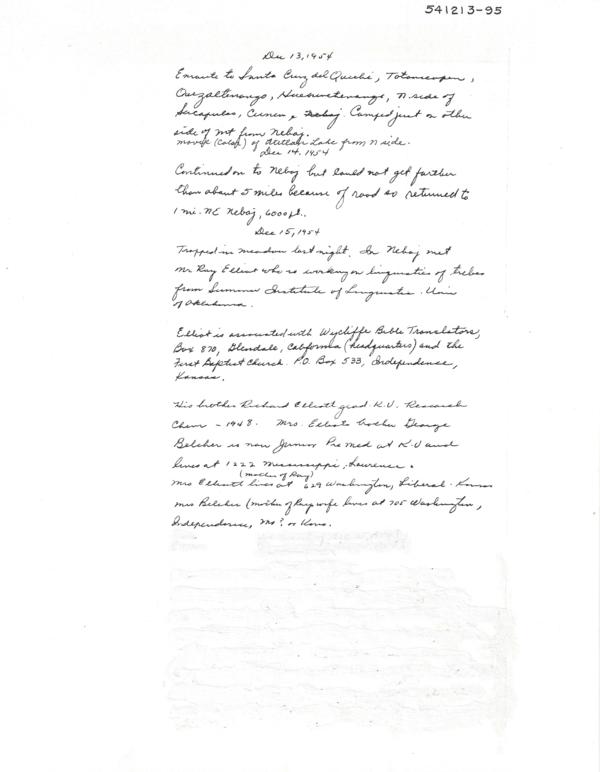 541213-95
Dec 13, 1954
Enroute to Santa Cruz del Quiché, Totonicapan,
Quezaltenango, Huehuetenango, N. side of
Sacapulas, Cunen & Nebaj. Camped just on other
side of mt from Nebaj.
movie (color) of Atitlan Lake from N side.
Dec 14, 1954
Continued on to Nebaj but could not get farther
than about 5 miles because of road so returned to
1 mi. NE Nebaj, 6000 ft.
Dec 15, 1954
Trapped in meadow last night. In Nebaj met
Mr Ray Elliott who is working on linguistics of tribes
from Summer Institute of Linguistics. Univ
of Oklahoma.
Elliot is associated with Wycliffe Bible Translators,
Box 870, Glendale, California (headquarters) and the
First Baptist Church. P.O. Box 533, Independence,
Kansas.
His brother Richard Elliott grad K.U. Research
Chem - 1948. Mrs. Elliots brother George
Belcher is now Junior Pre med at K.U and
lives at 1222 Mississippi, Lawrence.
(mother of Ray)
Mrs Elliott lives at 629 Washington, Liberal. Kansas
Mrs Belcher (mother of Rays wife lives at 705 Washington,
Independence, Mo? or Kans.